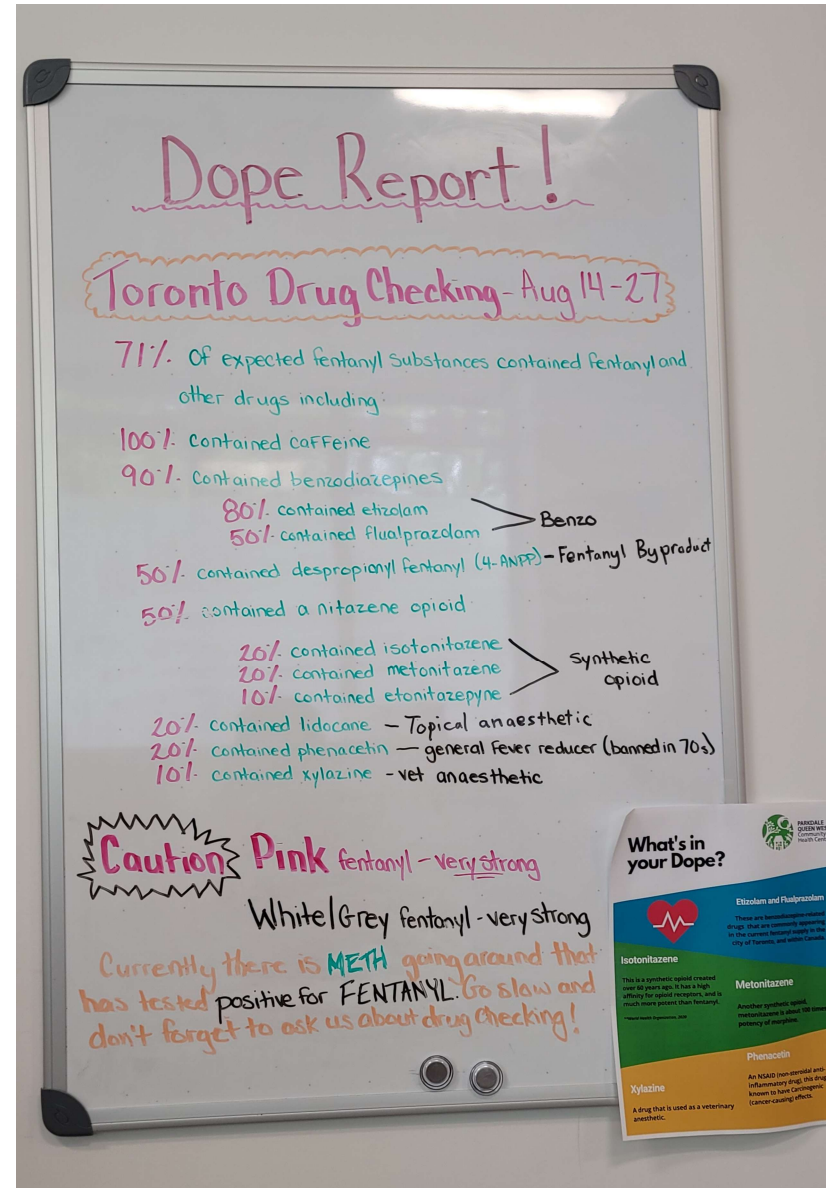 Dope Report!
Toronto Drug Checking - Aug 14-27
71% Of expected fentanyl substances contained fentanyl and
other drugs including:
100% contained caffeine
90% contained benzodiazepines
80% contained etizolam
50% contained flualprazolam
Benzo
50% contained despropionyl fentanyl (4-ANPP) - Fentanyl Byproduct
50% contained a nitazene opioid
20% contained isotonitazene
20% contained metonitazene
10% contained etonitazepyne
Synthetic
opioid
20% contained lidocane - Topical anaesthetic
20% contained phenacetin - general fever reducer (banned in 70s)
10% contained xylazine - vet anaesthetic
Caution Pink fentanyl - very strong
White/Grey fentanyl - very strong
Currently there is METH going around that
has tested positive for FENTANYL. Go slow and
don't forget to ask us about drug checking!
What's in
your Dope?
PARKDALE
QUEEN WEST
Community
Health Cent
Etizolam and Flualprazolam
These are benzodiazepine-related
drugs that are commonly appearing
in the current fentanyl supply in the
city of Toronto, and within Canada.
Isotonitazene
This is a synthetic opioid created
over 60 years ago. It has a high
affinity for opioid receptors, and is
much more potent than fentanyl.
Metonitazene
Another synthetic opioid,
metonitazene is about 100 times
potency of morphine.
Phenacetin
An NSAID (non-steroidal anti-
inflammatory drug), this drug
known to have Carcinogenic
(cancer-causing) effects.
Xylazine
A drug that is used as a veterinary
anesthetic.